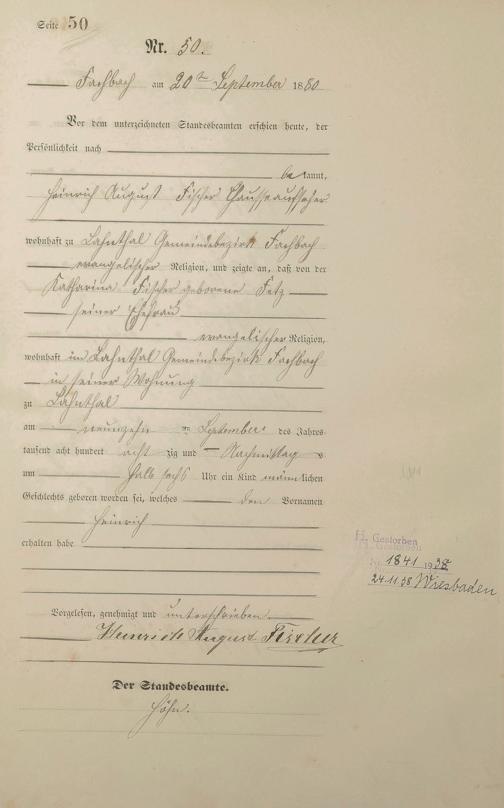 Seite 50
Nr. 50.
Fachbach am 20ten September 1880
Vor dem unterzeichneten Standesbeamten erschien heute, der
Persönlichkeit nach
be kannt,
Heinrich August Fischer Chausseeaufseher
wohnhaft zu Lahnthal Gemeindebezirk Fachbach
evangelischer Religion, und zeigte an, daß von der
Katharina Fischer geborene Fetz
seiner Ehefrau
evangelischer Religion,
wohnhaft im Lahnthal Gemeindebezirk Fachbach
in seiner Wohnung
zu Lahnthal
am neunzehn ten September des Jahres
tausend acht hundert acht zig und Nachmittag s
um halb sechs Uhr ein Kind männ lichen
Geschlechts geboren worden sei, welches den Vornamen
Heinrich
erhalten habe
Vorgelesen, genehmigt und unterschrieben
Heinrich August Fischer
Der Standesbeamte.
Höhn.
H. Gestorben
Nr. 1841 1938
24.11.38 Wiesbaden